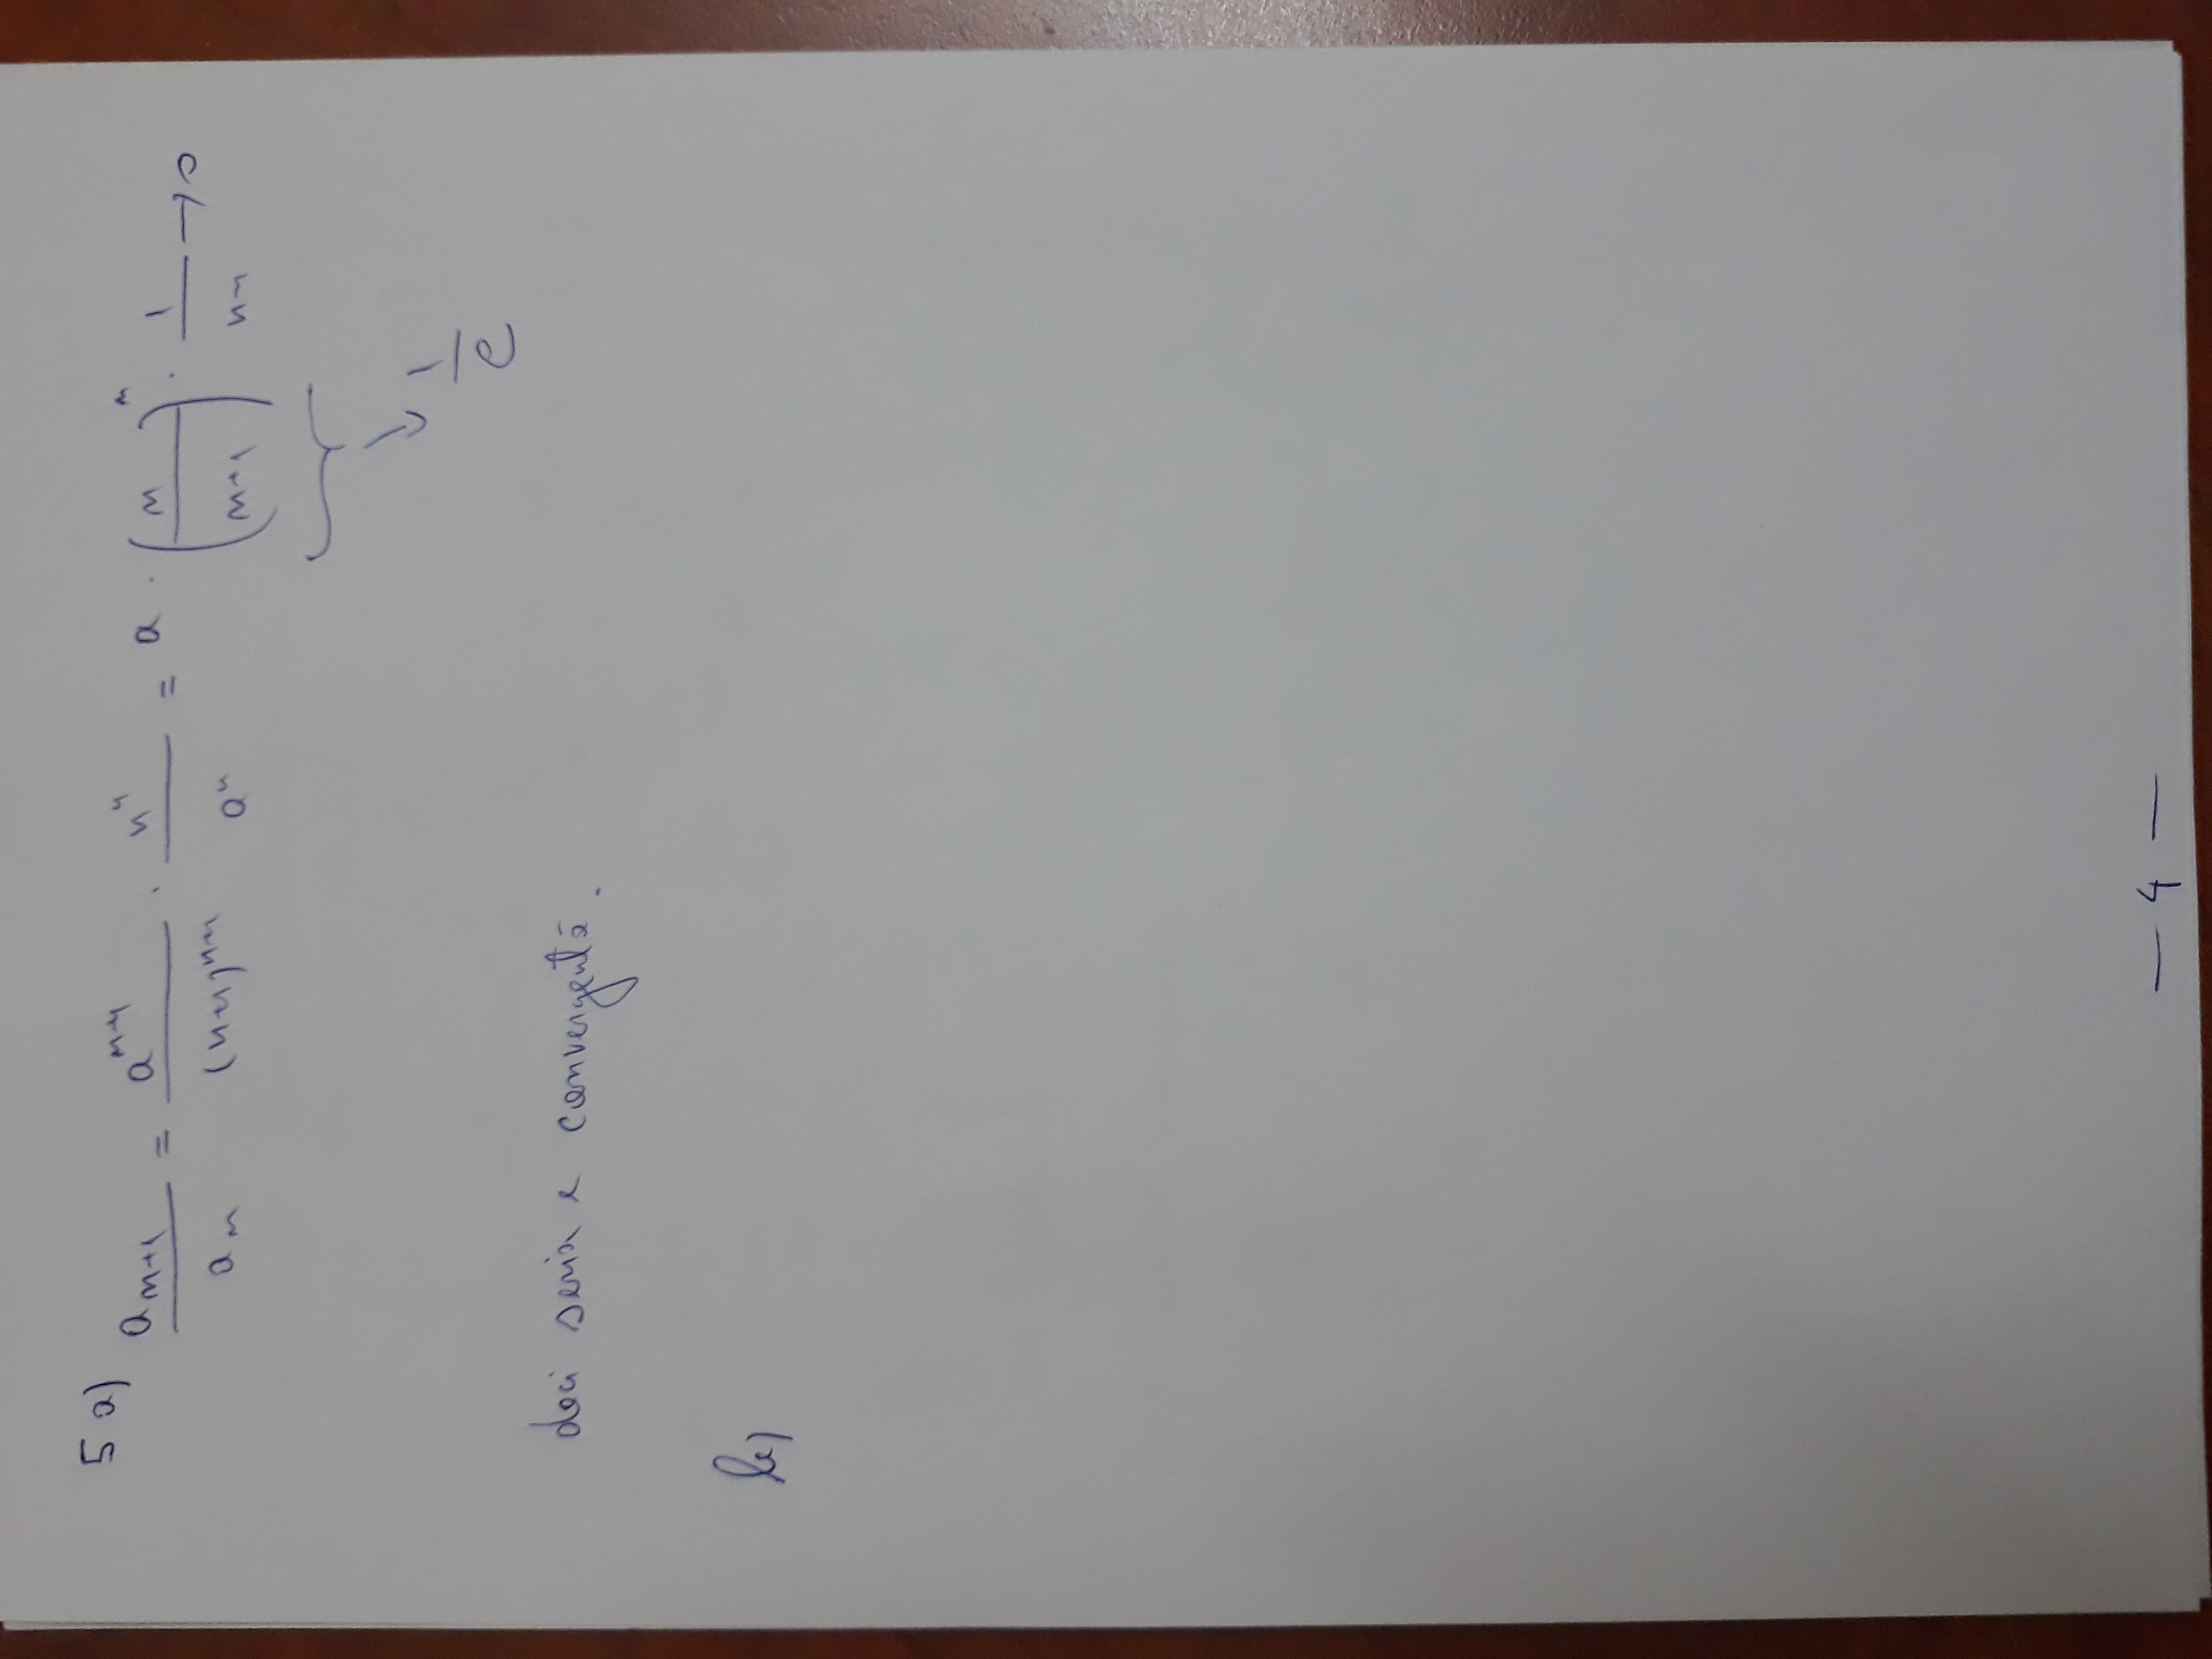 5 a) a_{n+1} / a_n = a^{n+1} / (n+1)^{n+1} · n^n / a^n = a · (n / n+1)^n · 1 / n+1 → 0
↘ 1 / e
deci seria e convergentă.
b)
— 4 —